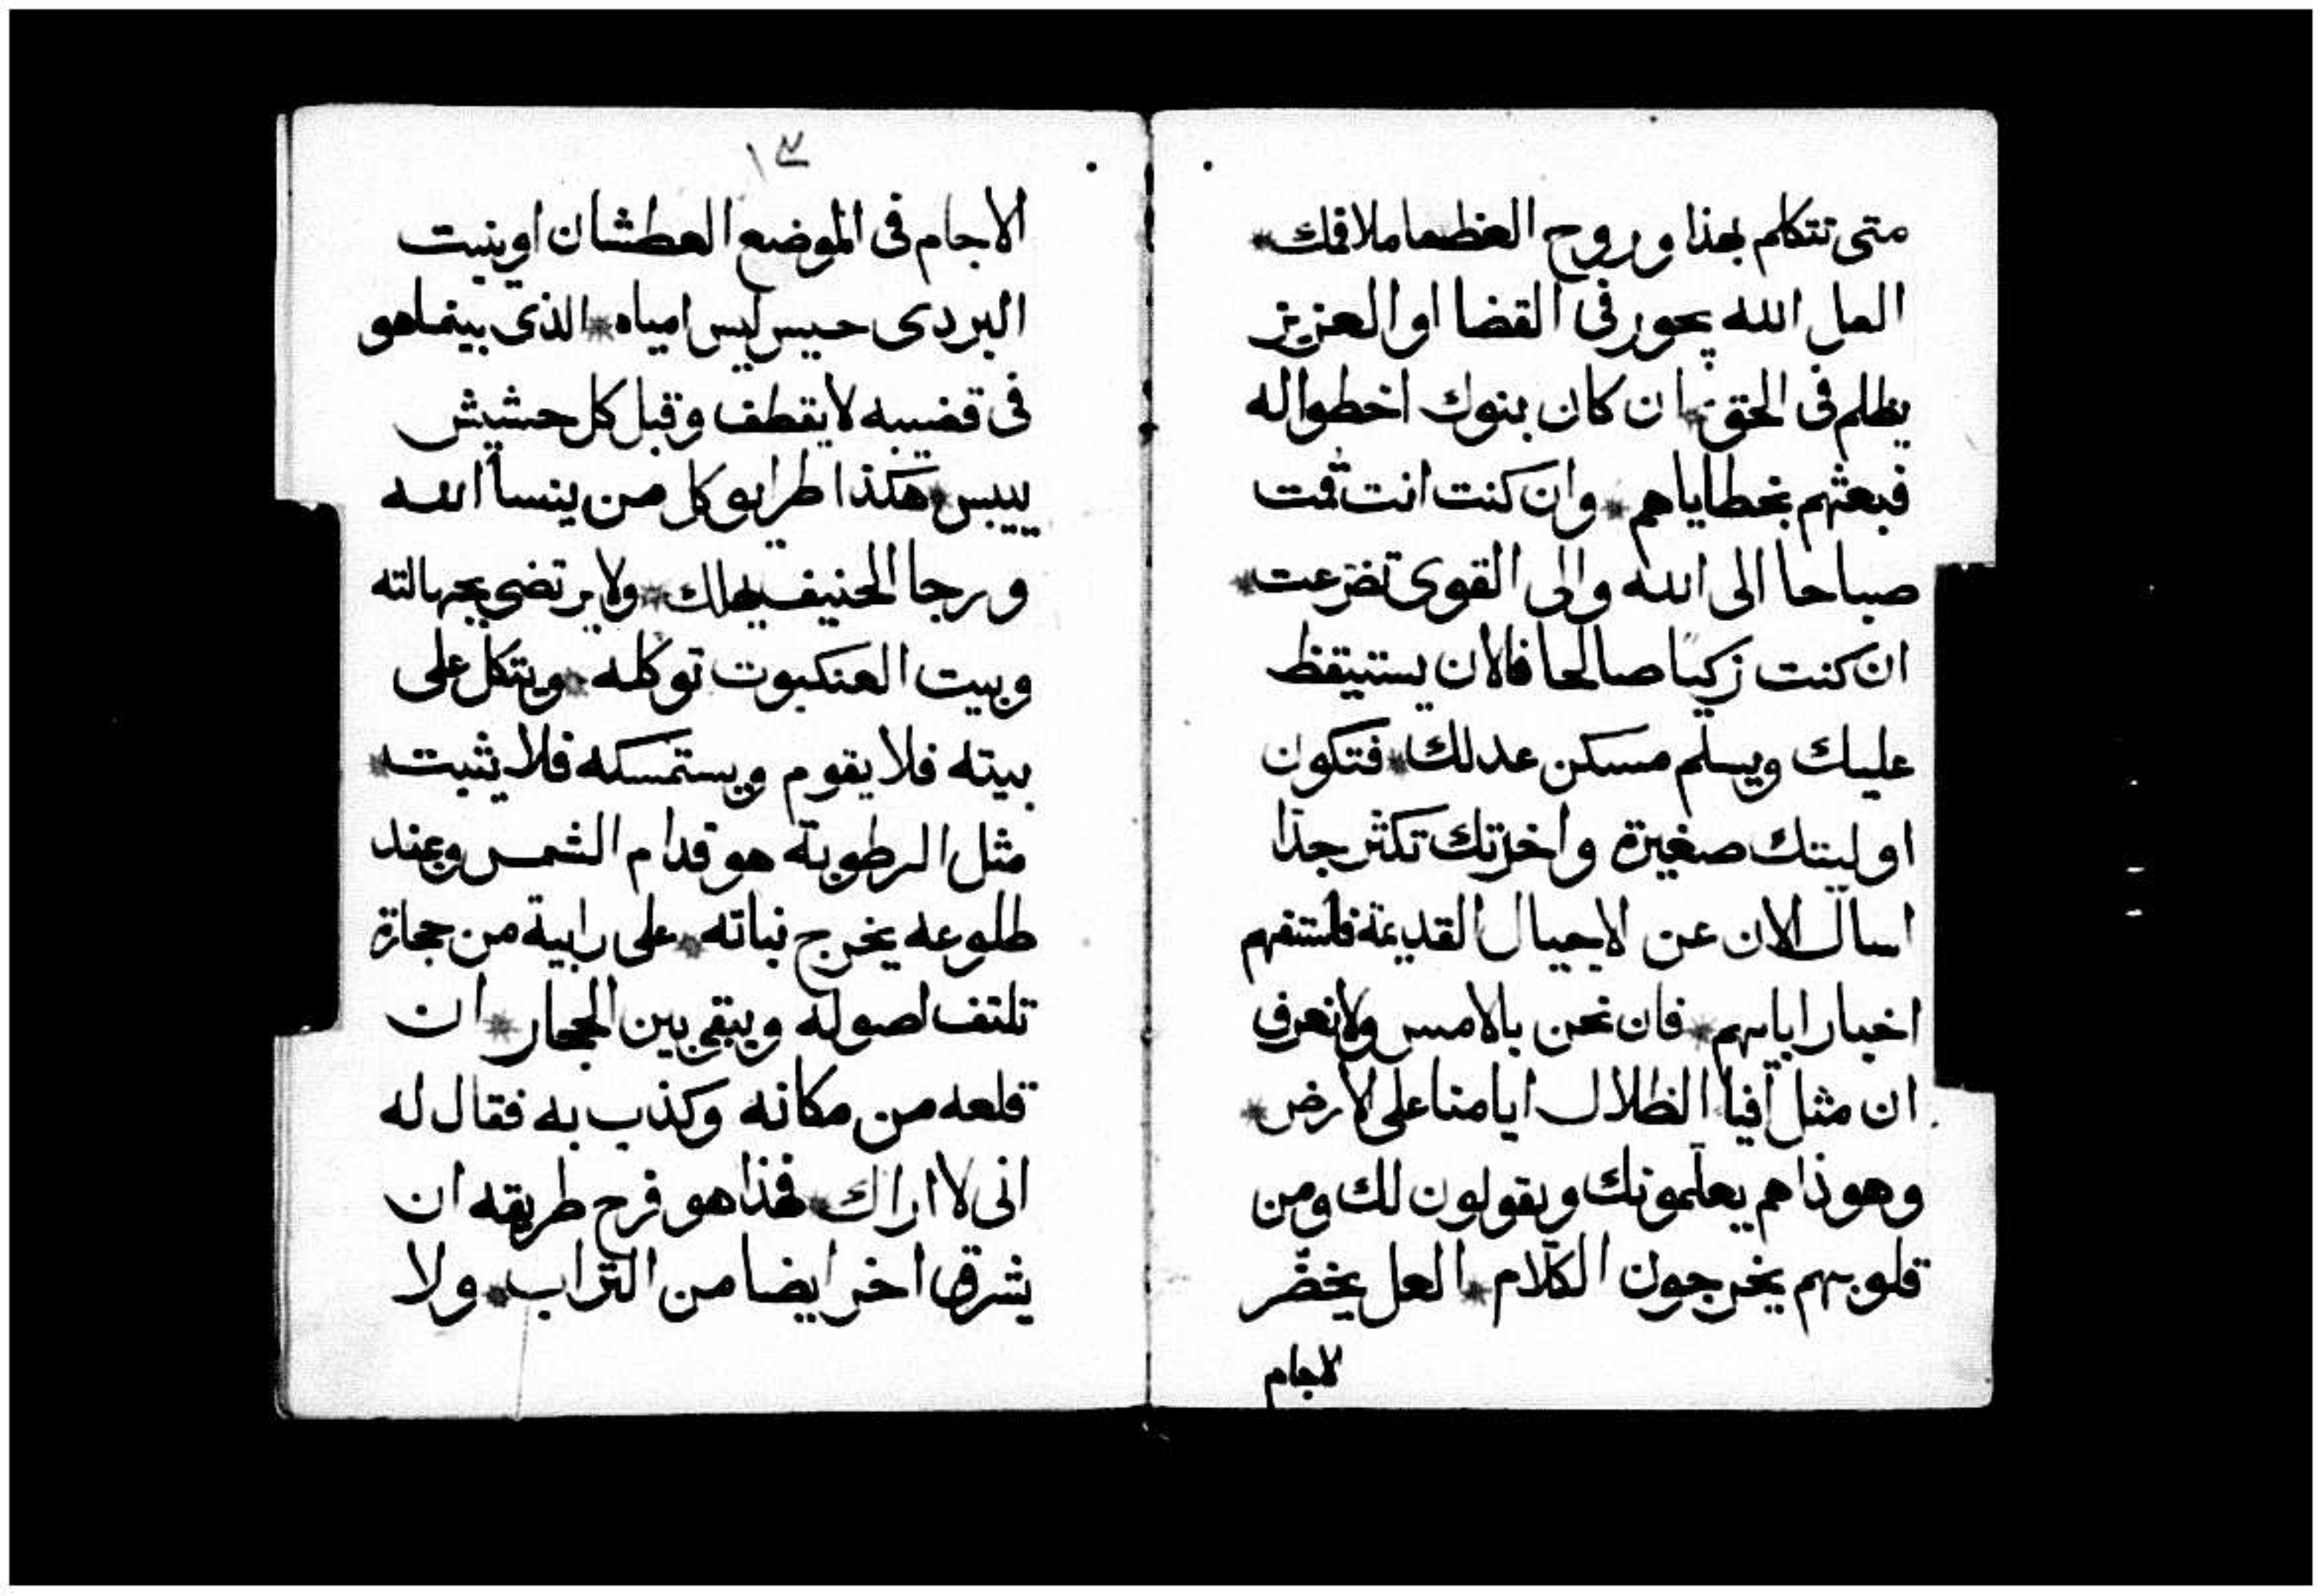 متى تتكلم بهذا وروح العظما ملافك *
العل الله يجور فى القضا او العزيز
يظلم فى الحق * ان كان بنوك اخطوا له
فبعثهم بخطاياهم * وان كنت انت قمت
صباحا الى الله والى القوى تضرعت *
ان كنت زكيا صالحا فالان يستيقظ
عليك ويسلم مسكن عدلك * فتكون
اوليتك صغيرة واخرتك تكثر جدا
اسال الان عن لاجيال القديمة فاستفهم
اخبار ابايهم * فان نحن بالامس ولانعرف
ان مثل افيا الظلال ايامنا على لارض *
وهوذا هم يعلمونك ويقولون لك ومن
قلوبهم يخرجون الكلام * العل يخضر
لاجام
١٣
الاجام فى الموضع العطشان او ينبت
البردى حيس ليس امياه * الذى بينما هو
فى قضيبه لا يقطف وقبل كل حشيش
ييبس * هكذا طرايو كل من ينسا الله
ورجا الحنيف يهلك * ولا يرتضى بجهالته
وبيت العنكبوت توكله * ويتكل على
بيته فلا يقوم ويستمسكه فلا يثبت *
مثل الرطوبة هو قدام الشمس وعند
طلوعه يخرج نباته * على رابية من حجارة
تلتف اصوله ويبقى بين الحجار * ان
قلعه من مكانه وكذب به فقال له
انى لا اراك * فهذا هو فرح طريقه ان
يشرق اخر ايضا من التراب * ولا